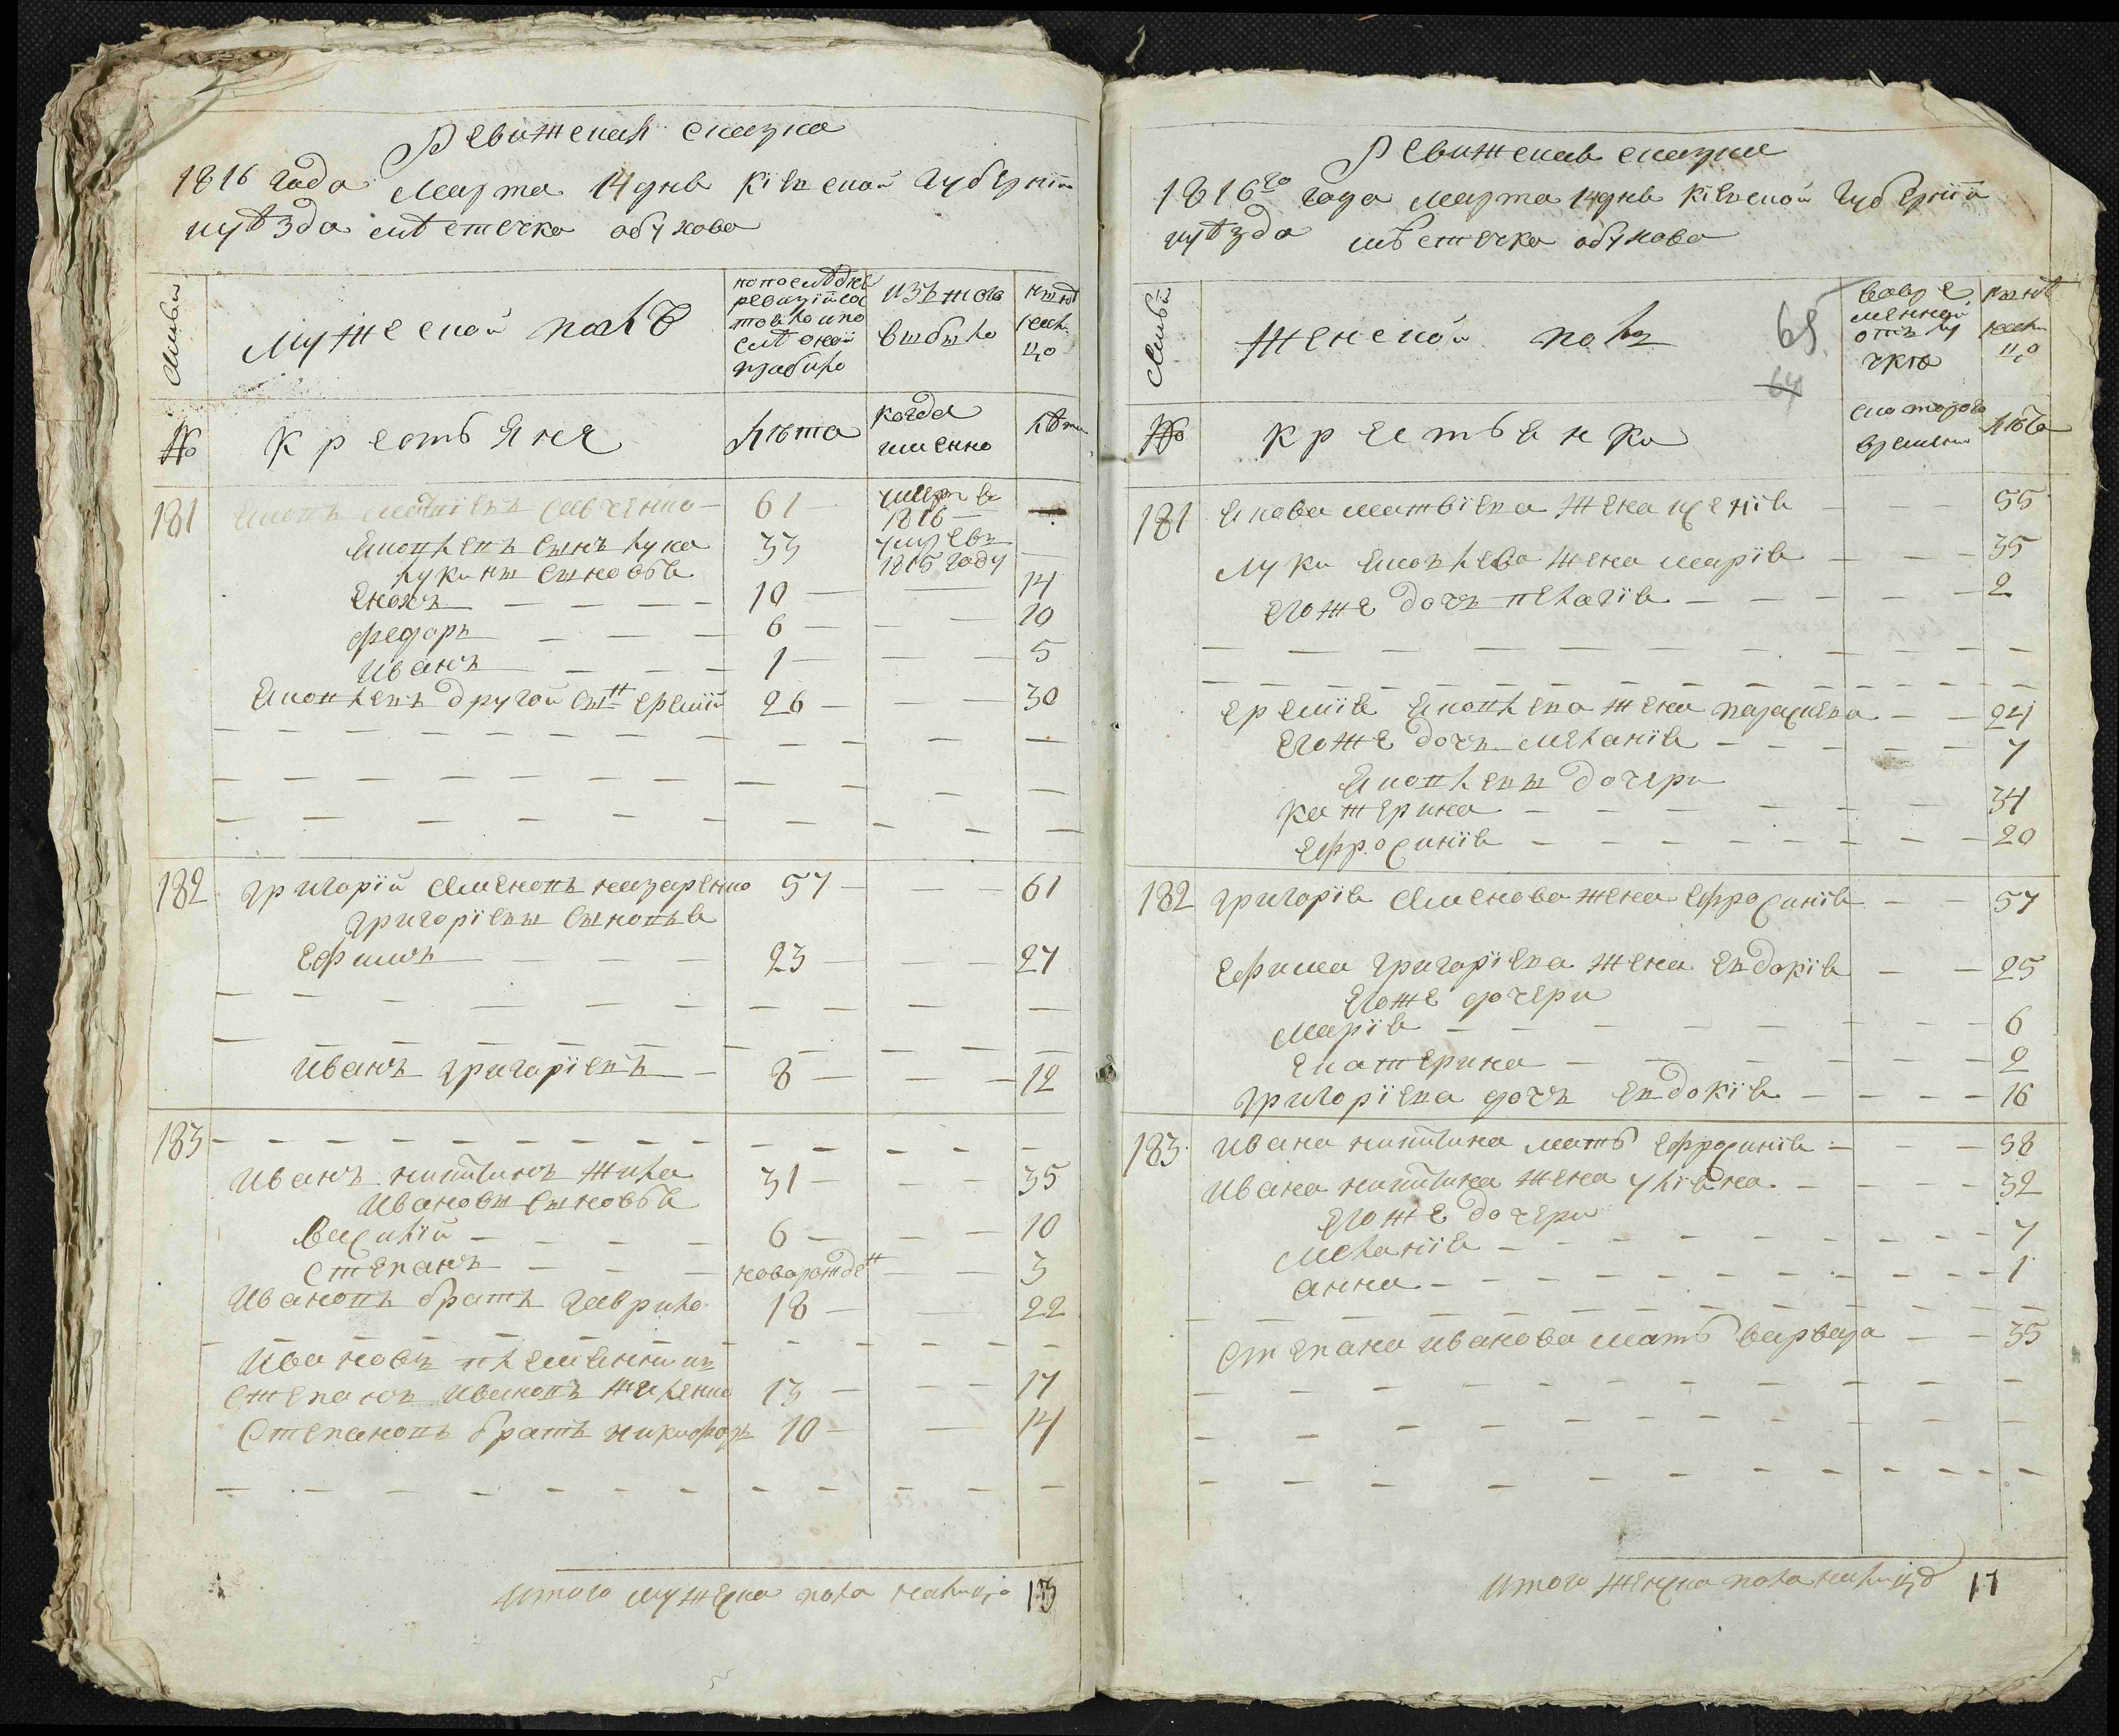 Ревижская сказка
1816 года Марта 14 дня Кіевской Губерніи
и уѣзда мѣстечка обухова
Семьи
Мужеской полъ
по последнѣй ревизіи состояло и после оной прибыло
изъ того выбыло
ныне на лицо
№
Крестьяне
лѣта
когда именно
лѣта
181
Яковъ Матвіевъ Савченко — 61 — умеръ в 1816 —
Яковлевъ сынъ Лука 33 умре въ 1815 году —
Лукины сыновья
Яковъ — — — — 10 — — 14
Федоръ — — — 6 — — — 10
Иванъ — — — 1 — — — 5
Яковлевъ другой сынъ Еремій 26 — — — 30
182
Григорій Семеновъ Назаренко 57 — — — 61
Григоріевы сыновья
Ефимъ — — — 23 — — — 27
Иванъ Григоріевъ — 8 — — — 12
183
Иванъ Никитинъ Жила 31 — — — 35
Ивановы сыновья
Василій — — — 6 — — — 10
Степанъ — — — новорожден — — 3
Ивановъ братъ Гаврило 18 — — 22
Ивановъ племянникъ
Степанъ Ивановъ Жиленко 13 — — — 17
Степановъ братъ Никифоръ 10 — — 14
Итого мужеска пола налицо 13
Ревижская сказка
1816го года Марта 14 дня Кіевской Губерніи
и уѣзда мѣстечка обухова
Семьи
Женской полъ
65
64
вовременной отлучке
ныне на лицо
№
Крестьянки
с которого времени
лѣта
181
Якова Матвіева жена Ксенія — — — 55
Луки Яковлева жена Марія — — — 35
Егоже дочь Пелагія — — — — 2
Еремія Яковлева жена Параскева — — 24
Егоже дочь Меланія — — — — 7
Яковлевы дочери
Катерина — — — — — 34
Ефросинія — — — — — 20
182
Григорія Семенова жена Ефросинія — — 57
Ефима Григоріева жена Евдокія — — 25
Егоже дочери
Марія — — — — — 6
Екатерина — — — — 2
Григоріева дочь Евдокія — — — — 16
183
Ивана Никитина мать Ефросинія — — — 58
Ивана Никитина жена Уліяна — — — — 32
Егоже дочери
Меланія — — — — — 7
Анна — — — — — 1
Степана Иванова мать Варвара — — 35
Итого женска пола налицо 17